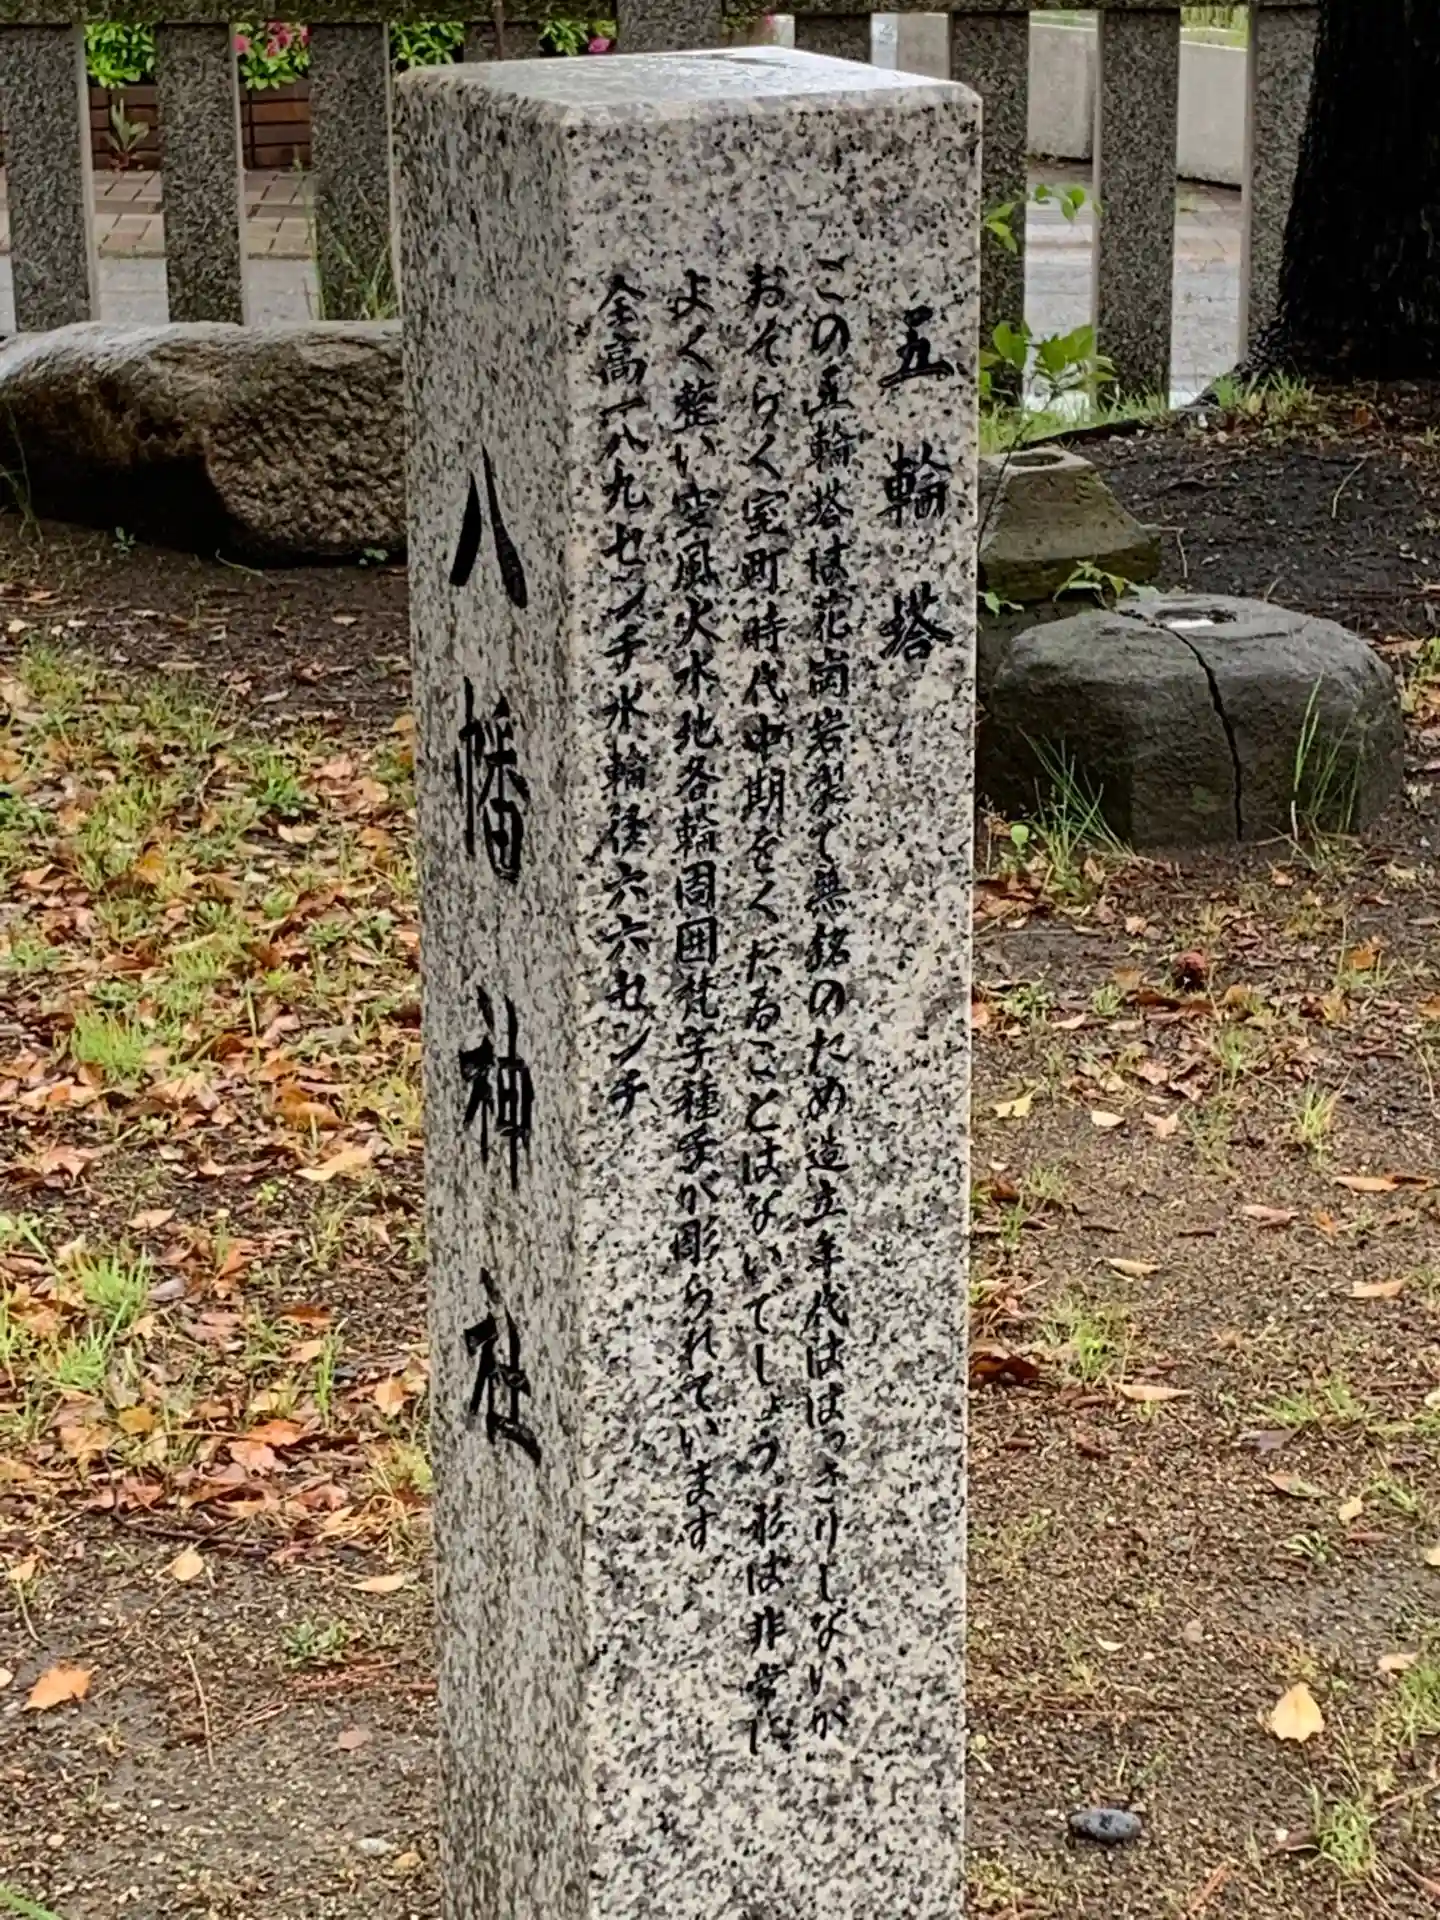 五輪塔
この五輪塔は花崗岩製で無銘のため造立年代ははっきりしないが
おそらく室町時代中期をくだることはないでしょう。形は非常に
よく整い空風火水地各輪周囲梵字種子が彫られています
全高一八九センチ水輪径六六センチ
八幡神社